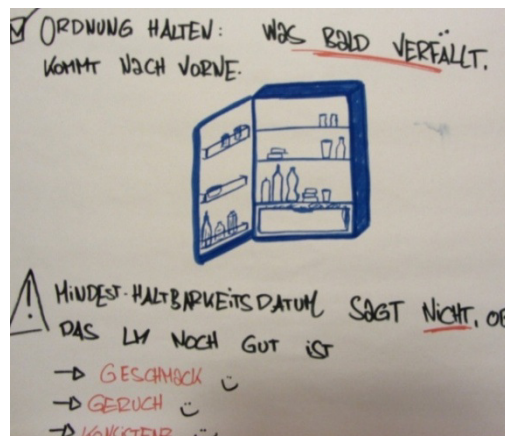 ORDNUNG HALTEN: WAS BALD VERFÄLLT,
KOMMT NACH VORNE.
MINDEST-HALTBARKEITSDATUM SAGT NICHT, OB
DAS LM NOCH GUT IST
→ GESCHMACK
→ GERUCH
→ KONSISTENZ